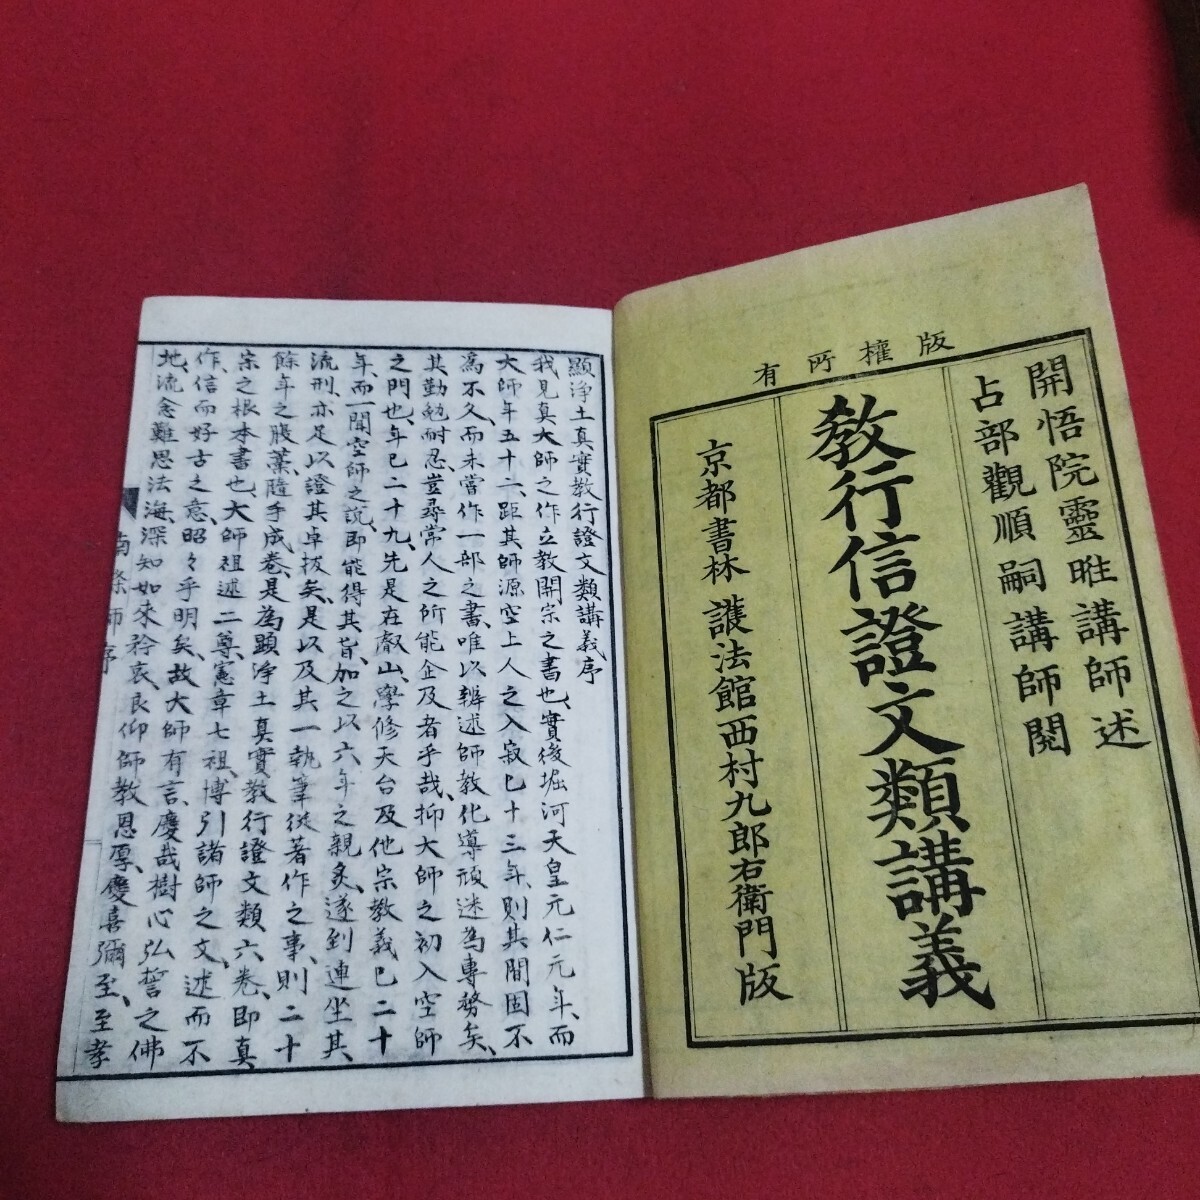 版權所有
開悟院靈暀講師述
占部觀順嗣講師閱
教行信證文類講義
京都書林 護法館西村九郎右衛門版
顯淨土真實教行證文類講義序
我見真大師之作立教開宗之書也、實後堀河天皇元仁元年、而
大師年五十二、距其師源空上人之入寂已十三年、則其間固不
為不久、而未嘗作一部之書、唯以辨述師教化導頑迷為專務矣、
其勤勉耐忍、豈尋常人之所能企及者乎哉、抑大師之初入空師
之門也、年已二十九、先是在叡山、學修天台及他宗教義已二十
年、而一聞空師之說、即能得其旨、加之以六年之親炙、遂到連坐其
流刑、亦足以證其卓拔矣、是以及其一執筆從著作之事、則二十
餘年之腹藁、隨手成卷、是為顯淨土真實教行證文類六卷、即真
宗之根本書也、大師祖述二尊、憲章七祖、博引諸師之文、述而不
作、信而好古之意、昭々乎明矣、故大師有言、慶哉樹心弘誓之佛
地、流念難思法海、深知如來矜哀、良仰師教恩厚、慶喜彌至、至孝
南條師序